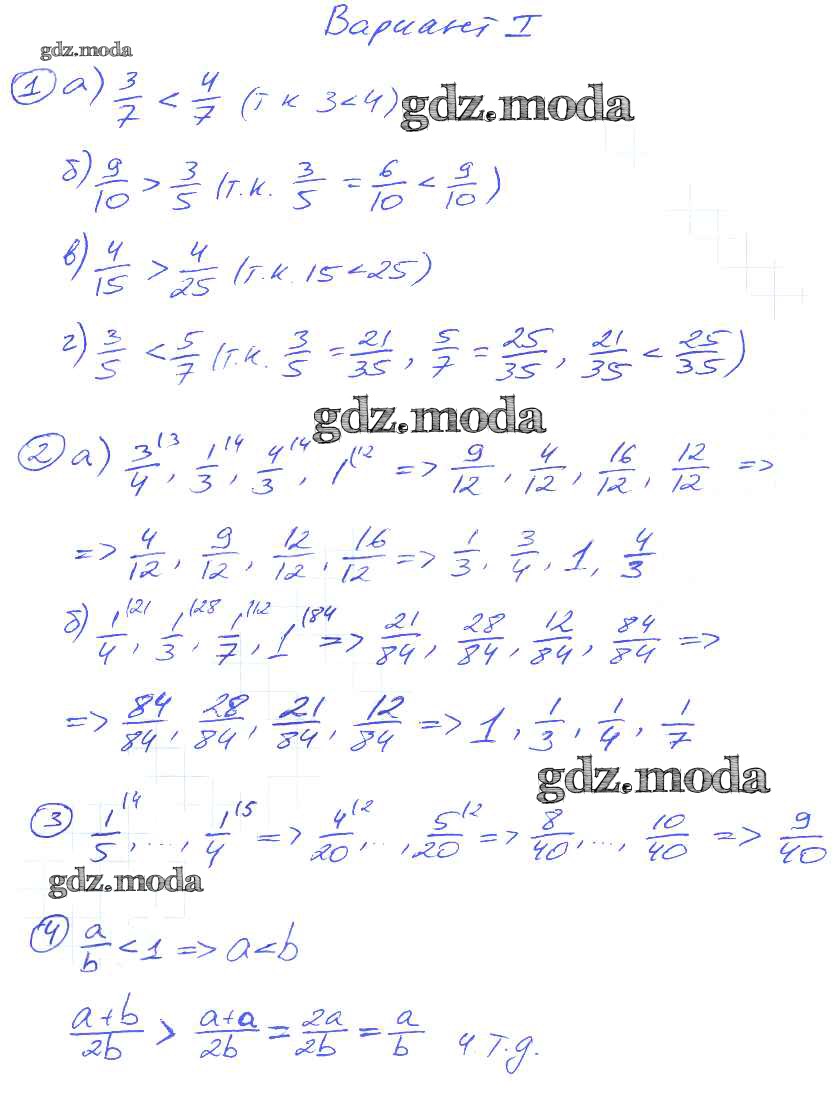 Вариант I
gdz.moda
① а) 3/7 < 4/7 (т к 3<4) gdz.moda
б) 9/10 > 3/5 (т.к. 3/5 = 6/10 < 9/10)
в) 4/15 > 4/25 (т.к. 15<25)
г) 3/5 < 5/7 (т.к. 3/5 = 21/35, 5/7 = 25/35, 21/35 < 25/35)
gdz.moda
② а) 3/4⁽³, 1/3⁽⁴, 4/3⁽⁴, 1⁽¹² => 9/12, 4/12, 16/12, 12/12 =>
=> 4/12, 9/12, 12/12, 16/12 => 1/3, 3/4, 1, 4/3
б) 1/4⁽²¹, 1/3⁽²⁸, 1/7⁽¹², 1⁽⁸⁴ => 21/84, 28/84, 12/84, 84/84 =>
=> 84/84, 28/84, 21/84, 12/84 => 1, 1/3, 1/4, 1/7
gdz.moda
③ 1/5⁽⁴, ..., 1/4⁽⁵ => 4/20⁽², .., 5/20⁽² => 8/40, ..., 10/40 => 9/40
gdz.moda
④ a/b < 1 => a < b
(a+b)/2b > (a+a)/2b = 2a/2b = a/b ч т.д.